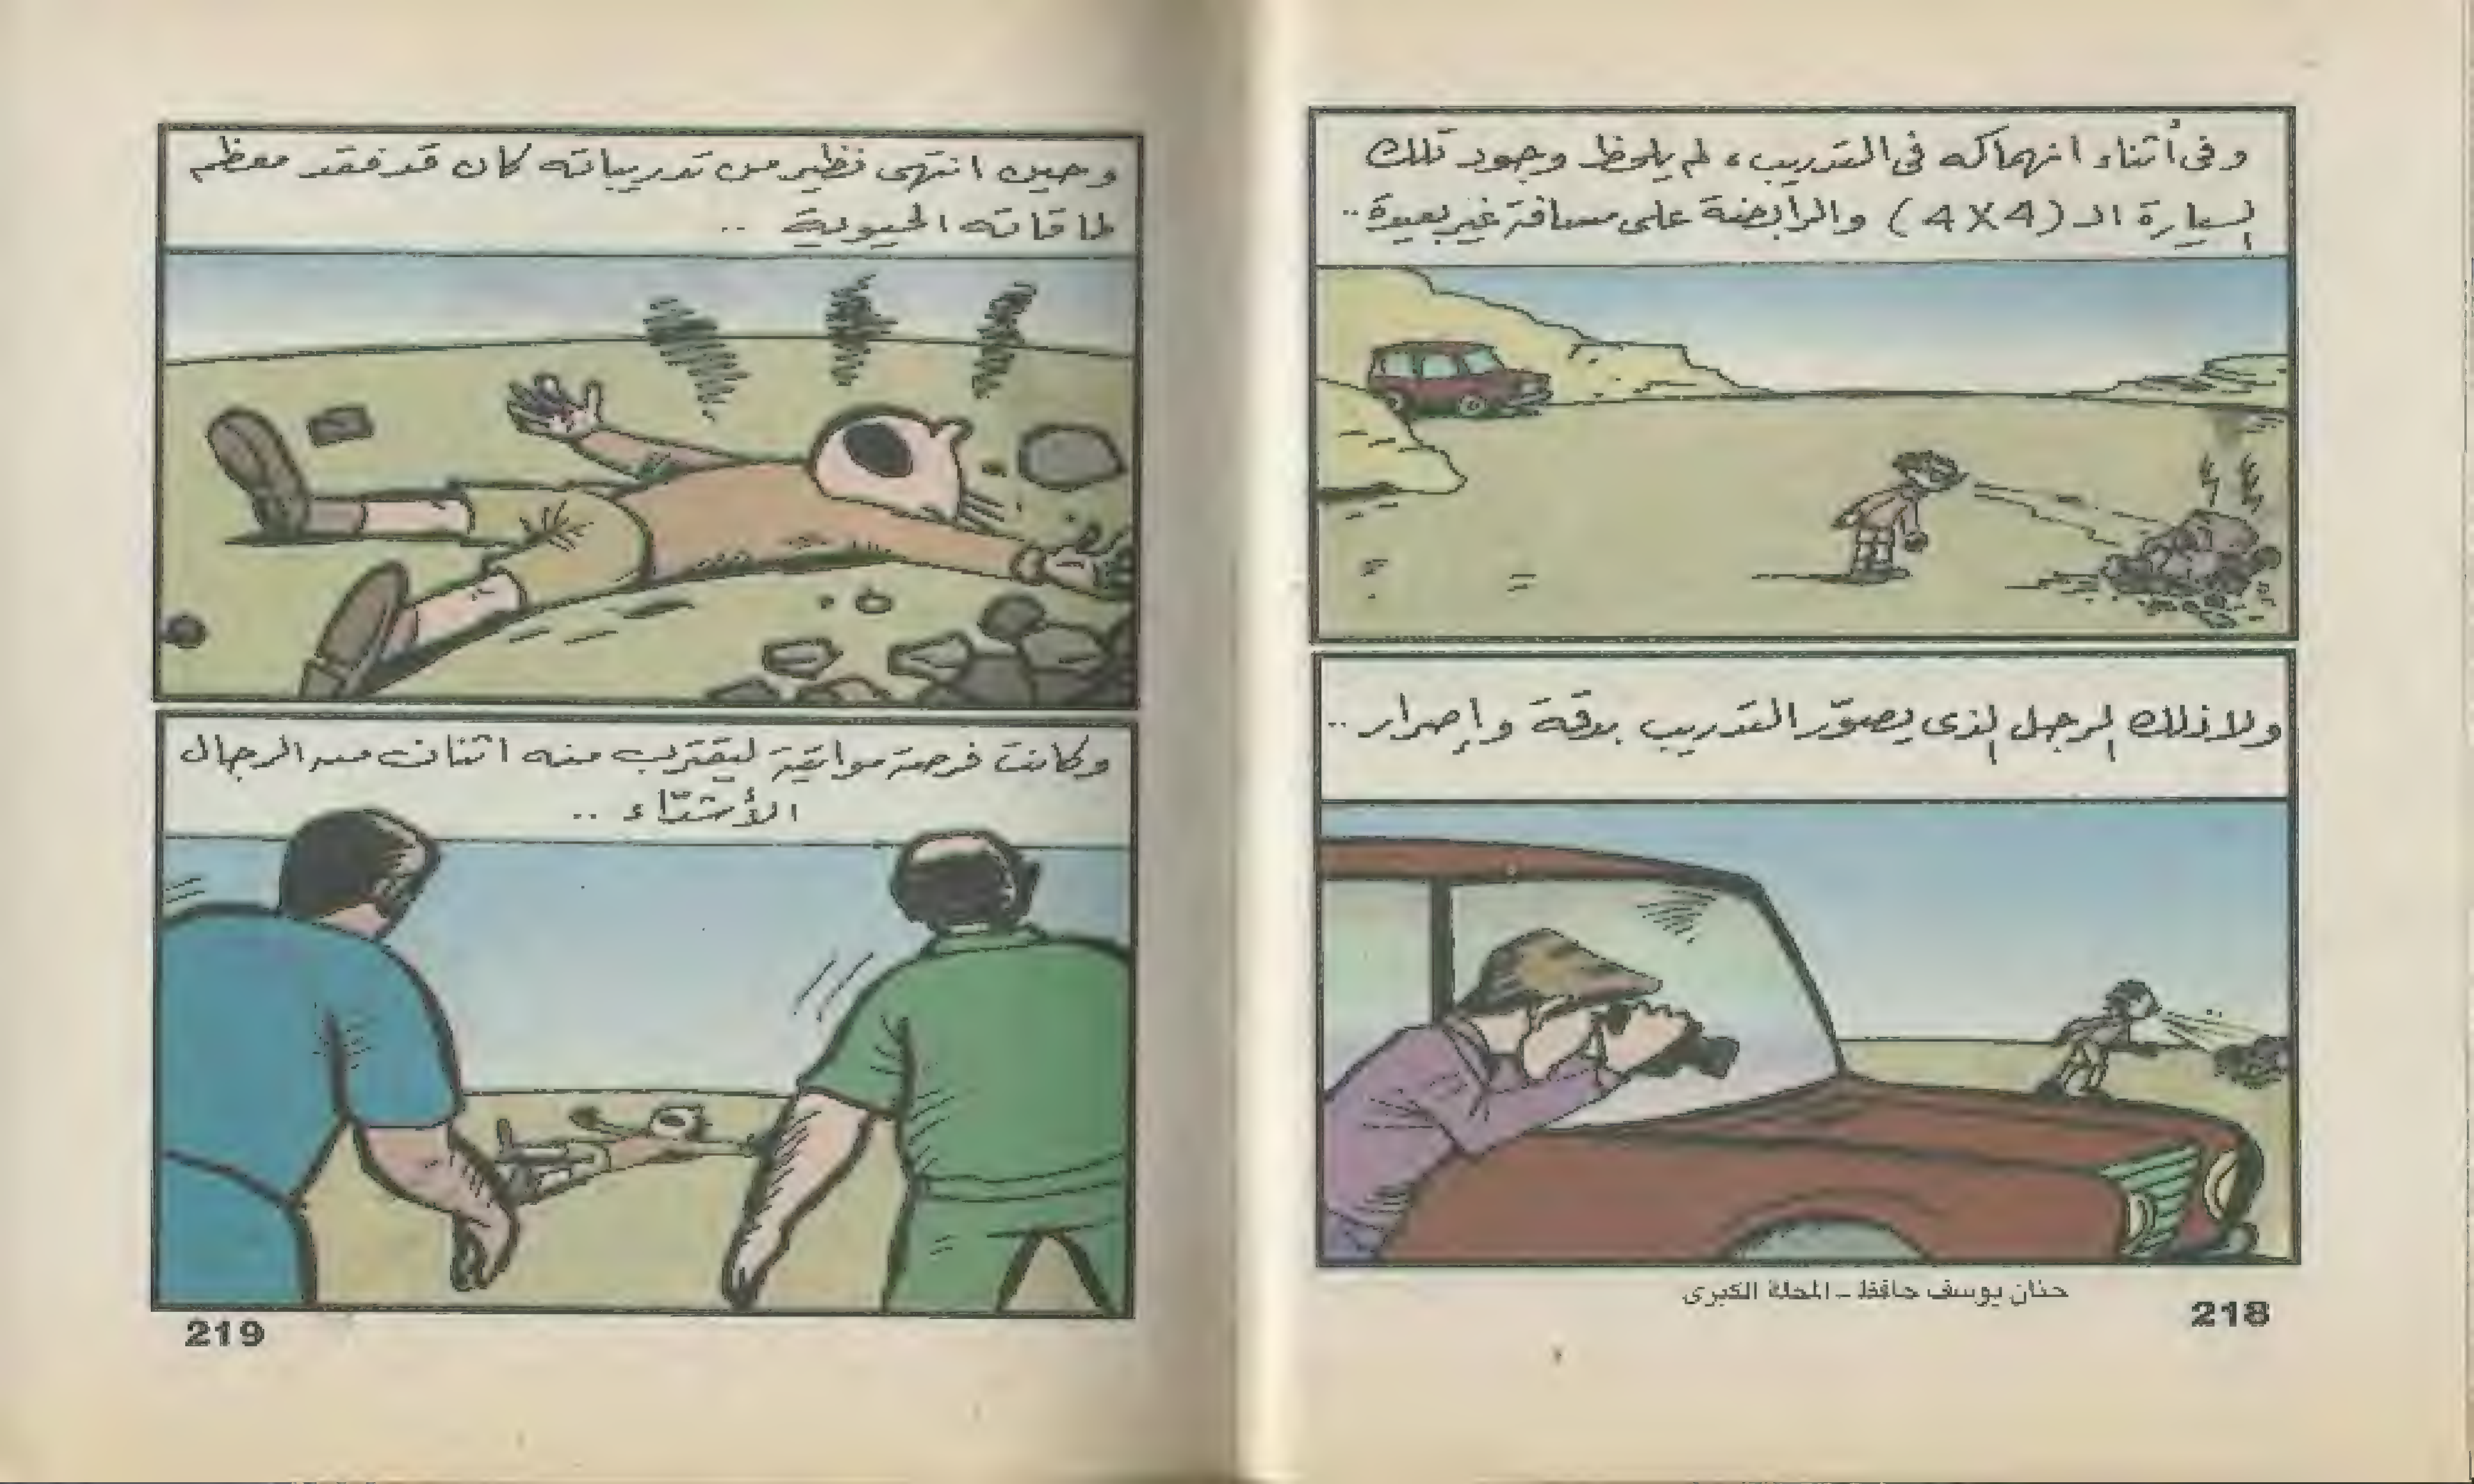 وفى أثناء انهماكه فى التدريب، لم يلحظ وجود تلك
السيارة الـ (4X4) والرابضة على مسافة غير بعيدة..
ولا ذلك الرجل الذى يصوّر التدريب بدقة وإصرار..
حنان يوسف حافظ - المحلة الكبرى
218
وحين انتهى نظير من تدريباته كان قد فقد معظم
طاقاته الحيوية ..
وكانت فرصة مواتية ليقترب منه اثنان من الرجال
الأشدّاء ..
219